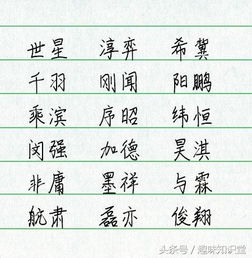 世星 淳弈 希冀
千羽 刚闻 阳鹏
乘滨 序昭 纬恒
闵强 加德 昊淇
非庸 墨祥 与霖
航肃 磊亦 俊翔
头条号 / 趣味知识堂